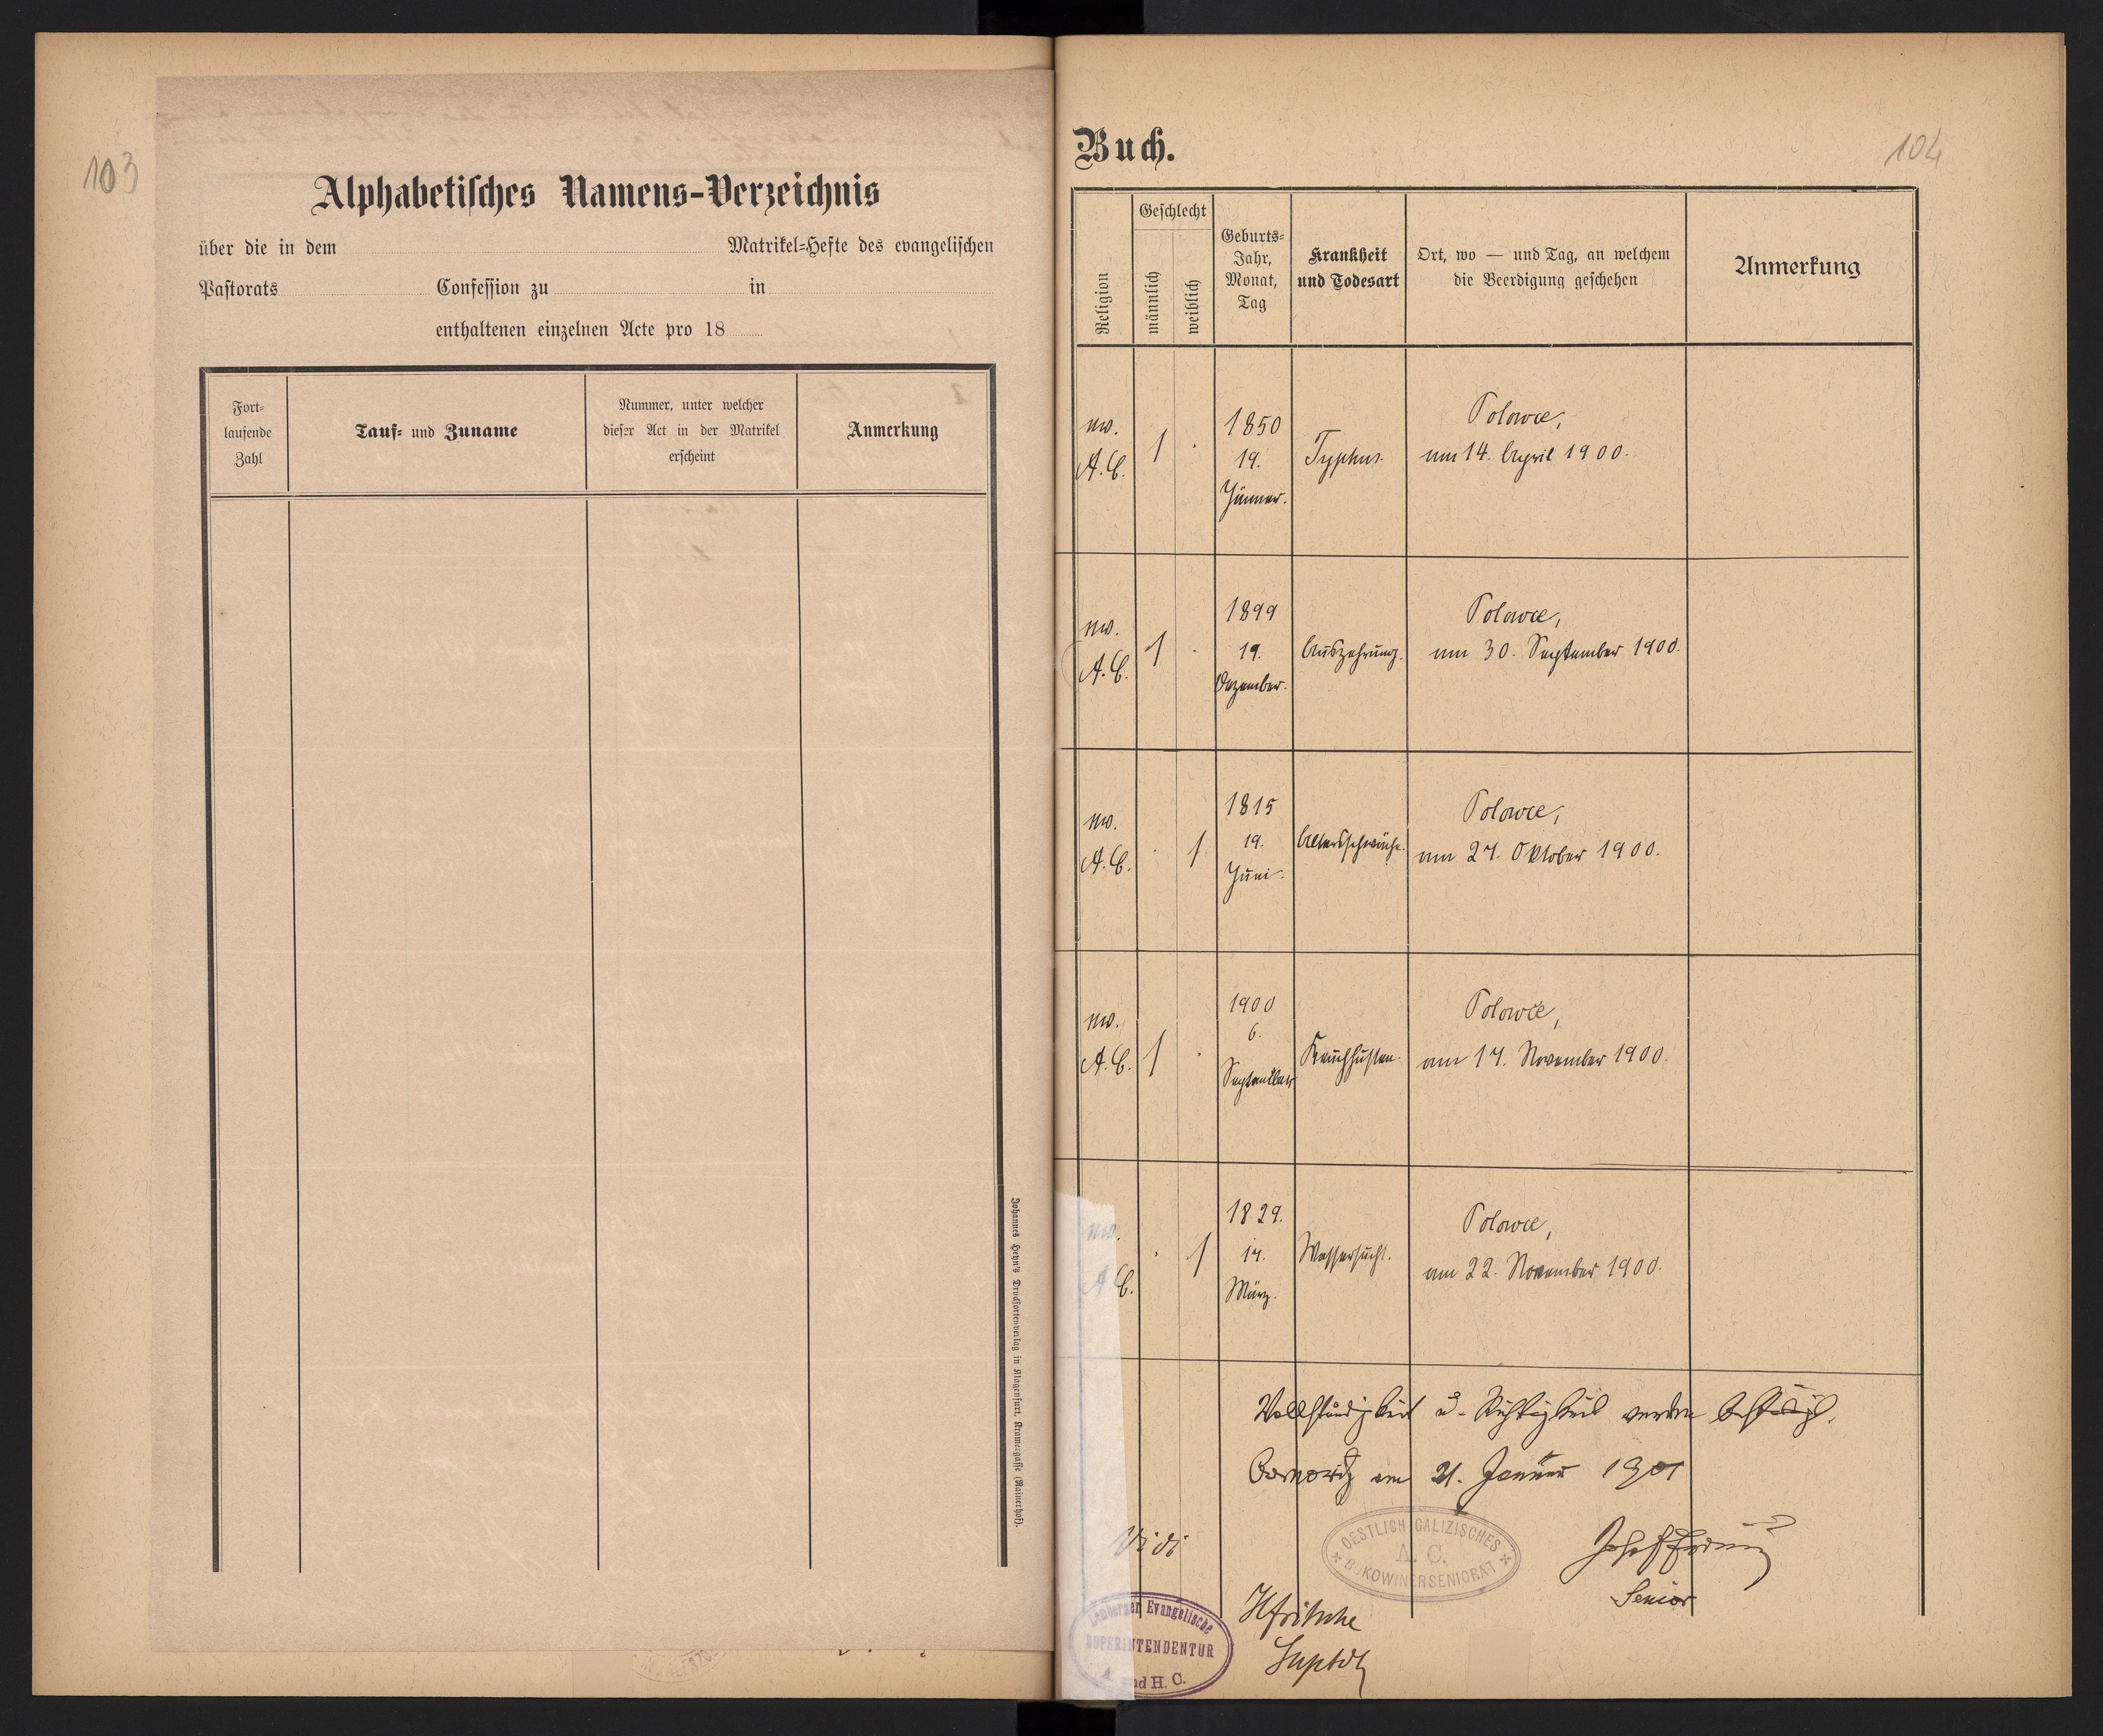 103
Alphabetisches Namens-Verzeichnis
über die in dem Matrikel-Hefte des evangelischen
Pastorats Confession zu in
enthaltenen einzelnen Acte pro 18
Fort-
laufende
Zahl
Tauf- und Zuname
Nummer, unter welcher
dieser Act in der Matrikel
erscheint
Anmerkung
Johannes Heyn's Drucksortenverlag in Klagenfurt, Kramergasse (Rainerhof).
Buch.
104
Religion
Geschlecht
männlich
weiblich
Geburts-
Jahr,
Monat,
Tag
Krankheit
und Todesart
Ort, wo — und Tag, an welchem
die Beerdigung geschehen
Anmerkung
ev.
A. C.
1
.
1850
19.
Jänner.
Typhus.
Polowce,
am 14. April 1900.
ev.
A. C.
1
.
1899
19.
Dezember.
Auszehrung.
Polowce,
am 30. September 1900.
ev.
A. C.
.
1
1815
19.
Juni.
Altersschwäche.
Polowce,
am 27. Oktober 1900.
ev.
A. C.
1
.
1900
6.
September
Keuchhusten.
Polowce,
am 17. November 1900.
ev.
A. C.
.
1
1829.
17.
März.
Wassersucht.
Polowce,
am 22. November 1900.
Vollständigkeit u. Richtigkeit werden bestätigt.
am 21. Januar 1901
OESTLICH GALIZISCHES
A. C.
BUKOWINER SENIORAT
Senior
Vidi
Lemberger Evangelische
SUPERINTENDENTUR
A. und H. C.
Hfritsche
Suptdt